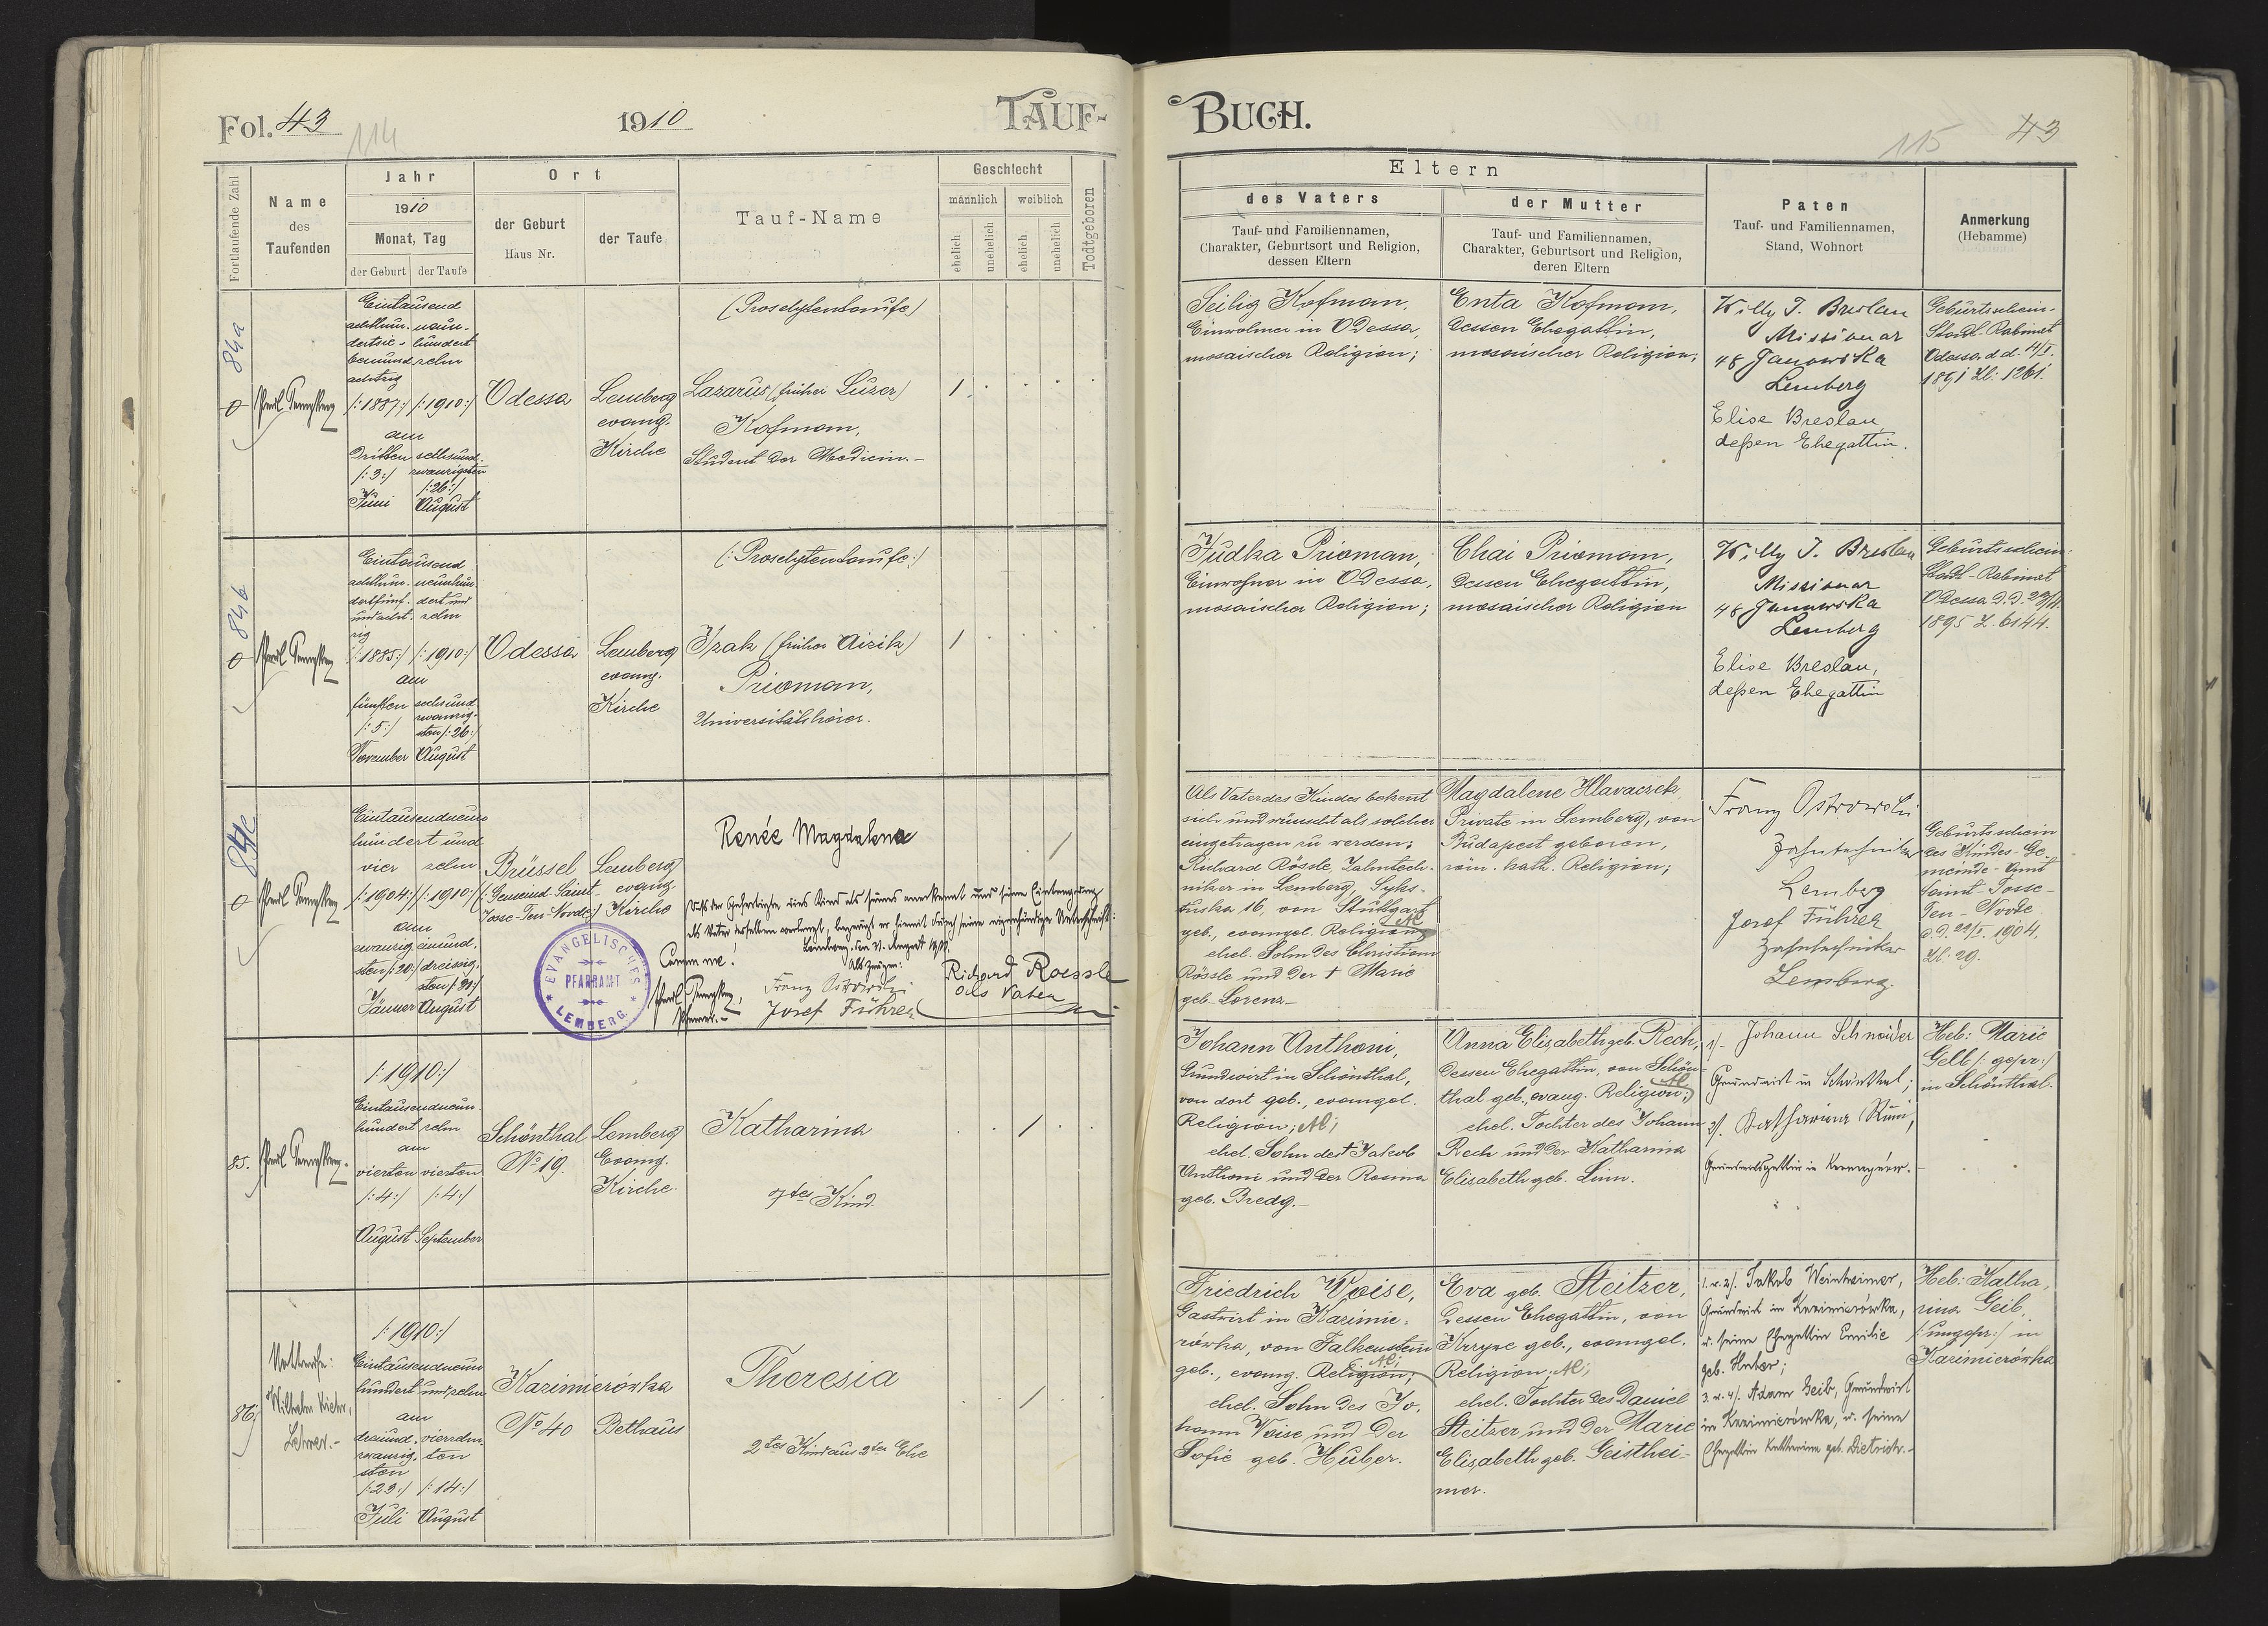 Fol. 43
114
1910
TAUF-
Fortlaufende Zahl
Name
des
Taufenden
Jahr
1910
Monat, Tag
der Geburt
der Taufe
Ort
der Geburt
Haus Nr.
der Taufe
Tauf-Name
Geschlecht
männlich
weiblich
ehelich
unehelich
ehelich
unehelich
Todtgeboren
84a
Eintausend
achthun- neun-
dertsie- hundert
benund zehn
achtzig
/:1887:/ /:1910:/
am
Dritten sechsund-
/:3:/ zwanzigsten
/:26:/
Juni August
Odessa
Lemberg
evang.
Kirche
(Proselytentaufe)
Lazarus (früher Luzer)
Kofman,
Student der Medicin.-
1
84b
Eintausend
achthun- neunhun
dertfünf- dert und
undacht- zehn
zig
/:1885:/ /:1910:/
am
fünften sechsund
zwanzig-
/:5:/ sten /:26:/
November August
Odessa
Lemberg
evang.
Kirche
(:Proselytentaufe:)
Izak (früher Aizik)
Prisman,
Universitätshörer.
1
84c
Eintausendneun
hundert und
vier zehn
/:1904:/ /:1910:/
am
zwanzig einund-
sten /:20:/ dreissig-
sten /:31:/
Jänner August
Brüssel
/: Gemeind-Saint
Josse-Ten-Noode:/
Lemberg
evang.
Kirche
Renée Magdalena
Lemberg, den 31. August 1910.
Coram me!
Als Zeugen:
Franz Ostrowski
Josef Führer
Richard Roessle
als Vater
EVANGELISCHES
PFARRAMT
LEMBERG
85.
/:1910:/
Eintausendneun-
hundert zehn
am
vierten vierten
/:4:/ /:4:/
August September
Schönthal
No 19.
Lemberg
Evang.
Kirche.
Katharina
7tes Kind.
86.
Nottaufe:
Lehrer.-
/:1910:/
Eintausendneun
hundert und zehn
am
dreiund- vierzehn-
zwanzig- ten
sten
/:23:/ /:14:/
Juli August
Kazimierówka
No 40
Bethaus
Theresia
2tes Kind aus 2ter Ehe
BUCH.
115
43
Eltern
des Vaters
Tauf- und Familiennamen,
Charakter, Geburtsort und Religion,
dessen Eltern
der Mutter
Tauf- und Familiennamen,
Charakter, Geburtsort und Religion,
deren Eltern
Paten
Tauf- und Familiennamen,
Stand, Wohnort
Anmerkung
(Hebamme)
Seilig Kofman,
Einwohner in Odessa,
mosaischer Religion;
Enta Kofman,
dessen Ehegattin,
mosaischer Religion;
Willy J. Breslau
Missionar
48 Janowska
Lemberg
Elise Breslau,
deßen Ehegattin.
Geburtsschein-
Stadt-Rabinat
Odessa, d.d. 14/I.
1891 Zl: 1261.
Judka Prisman,
Einwohner in Odessa,
mosaischer Religion;
Chai Prisman,
dessen Ehegattin,
mosaischer Religion
Willy J. Breslau
Missionar
48 Janowska
Lemberg
Elise Breslau,
deßen Ehegattin
Geburtsschein:
Stadt-Rabinat
Odessa d.d.
1895 Z. 6144.
Als Vater des Kindes bekent
sich und wünscht als solcher
eingetragen zu werden:
Richard Rössle, Zahntech-
niker in Lemberg, Syks-
tuska 16, von Stuttgart
geb., evangel. Religion AC
ehel. Sohn des Christian
Rössle und der † Marie
geb. Lorenz-
Magdalene Hlavaczek
Private in Lemberg, von
Budapest geboren,
röm. kath. Religion;
Franz Ostrowski
Zahntechniker
Lemberg
Josef Führer
Zahntechniker
Lemberg.
Geburtsschein
des Kindes-Ge-
meinde-Amt
Saint-Josse-
Ten-Noode
d.d. 22/I. 1904.
Zl: 29.
Johann Anthoni,
Grundwirt in Schönthal,
von dort geb., evangel.
Religion; AC;
ehel. Sohn des † Jakob
Anthoni und der Rosina
geb. Bredy.-
Anna Elisabeth geb. Rech,
dessen Ehegattin, von Schön-
thal geb., evang. Religion; AC
ehel. Tochter des Johann
Rech und der Katharina
Elisabeth geb. Linn.
1/- Johann Schneider
Grundwirt in Schönthal;
2/. Katharina
Heb: Marie
Gelb /: gepr:/
in Schönthal.
Friedrich Woise,
Gastwirt in Kazimie-
rówka, von Falkenstein
geb., evang. Religion; AC;
ehel. Sohn des Jo-
hann Woise und der
Sofie geb. Huber.
Eva geb. Steitzer,
dessen Ehegattin, von
geb., evangel.
Religion; AC;
ehel. Tochter des Daniel
Steitzer und der Marie
Elisabeth geb. Geisthei-
mer.
1. u. 2/. Jakob Weinheimer,
Grundwirt in Kazimierówka,
u. seine Ehegattin Emilie
geb. Huber;
3. u. 4/. Adam Geib, Grundwirt
in Kazimierówka, u. seine
Ehegattin Katharina geb. Dietrich.-
Heb: Katha-
rina Geib,
/: ungepr:/ in
Kazimierówka